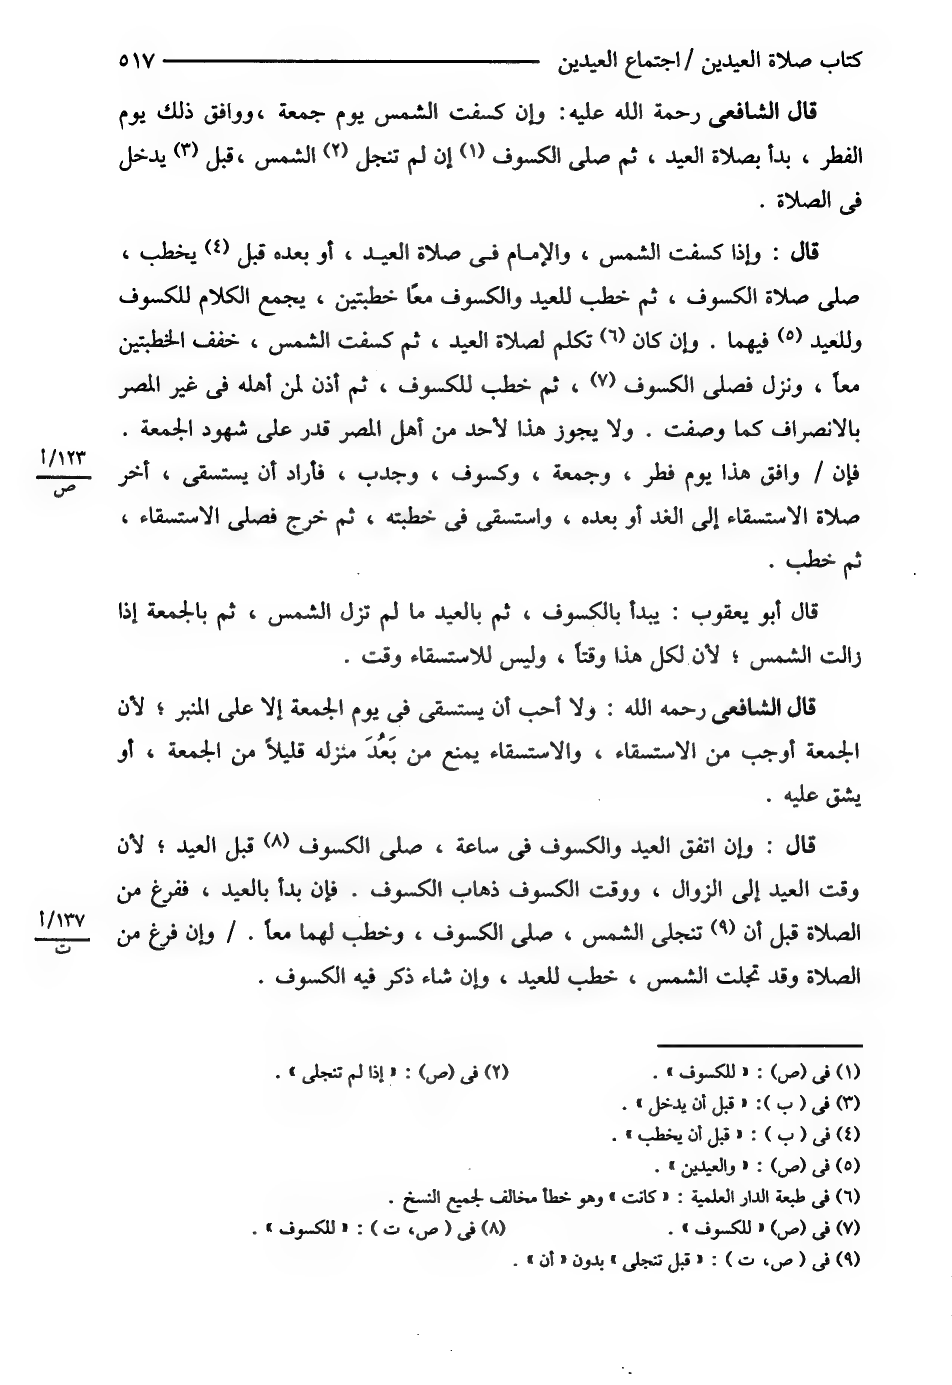 كتاب صلاة العيدين / اجتماع العيدين ٥١٧
قال الشافعى رحمة الله عليه: وإن كسفت الشمس يوم جمعة ،ووافق ذلك يوم
الفطر ، بدأ بصلاة العيد ، ثم صلى الكسوف (١) إن لم تنجل (٢) الشمس ،قبل (٣) يدخل
فى الصلاة .
قال : وإذا كسفت الشمس ، والإمام فى صلاة العيد ، أو بعده قبل (٤) يخطب ،
صلى صلاة الكسوف ، ثم خطب للعيد والكسوف معًا خطبتين ، يجمع الكلام للكسوف
وللعيد (٥) فيهما . وإن كان (٦) تكلم لصلاة العيد ، ثم كسفت الشمس ، خفف الخطبتين
معاً ، ونزل فصلى الكسوف (٧) ، ثم خطب للكسوف ، ثم أذن لمن أهله فى غير المصر
بالانصراف كما وصفت . ولا يجوز هذا لأحد من أهل المصر قدر على شهود الجمعة .
فإن / وافق هذا يوم فطر ، وجمعة ، وكسوف ، وجدب ، فأراد أن يستسقى ، أخر
١٢٣/أ
ص
صلاة الاستسقاء إلى الغد أو بعده ، واستسقى فى خطبته ، ثم خرج فصلى الاستسقاء ،
ثم خطب .
قال أبو يعقوب : يبدأ بالكسوف ، ثم بالعيد ما لم تزل الشمس ، ثم بالجمعة إذا
زالت الشمس ؛ لأن لكل هذا وقتاً ، وليس للاستسقاء وقت .
قال الشافعى رحمه الله : ولا أحب أن يستسقى فى يوم الجمعة إلا على المنبر ؛ لأن
الجمعة أوجب من الاستسقاء ، والاستسقاء يمنع من بَعُدَ منزله قليلاً من الجمعة ، أو
يشق عليه .
قال : وإن اتفق العيد والكسوف فى ساعة ، صلى الكسوف (٨) قبل العيد ؛ لأن
وقت العيد إلى الزوال ، ووقت الكسوف ذهاب الكسوف . فإن بدأ بالعيد ، ففرغ من
الصلاة قبل أن (٩) تنجلى الشمس ، صلى الكسوف ، وخطب لهما معاً . / وإن فرغ من
١٣٧/أ
ت
الصلاة وقد تجلت الشمس ، خطب للعيد ، وإن شاء ذكر فيه الكسوف .
(١) فى (ص) : « للكسوف » . (٢) فى (ص) : « إذا لم تنجلى » .
(٣) فى ( ب ): « قبل أن يدخل » .
(٤) فى ( ب ) : « قبل أن يخطب » .
(٥) فى (ص) : « والعيدين » .
(٦) فى طبعة الدار العلمية : « كانت » وهو خطأ مخالف لجميع النسخ .
(٧) فى (ص) « للكسوف » . (٨) فى ( ص، ت ) : « للكسوف » .
(٩) فى ( ص، ت ) : « قبل تنجلى » بدون « أن » .